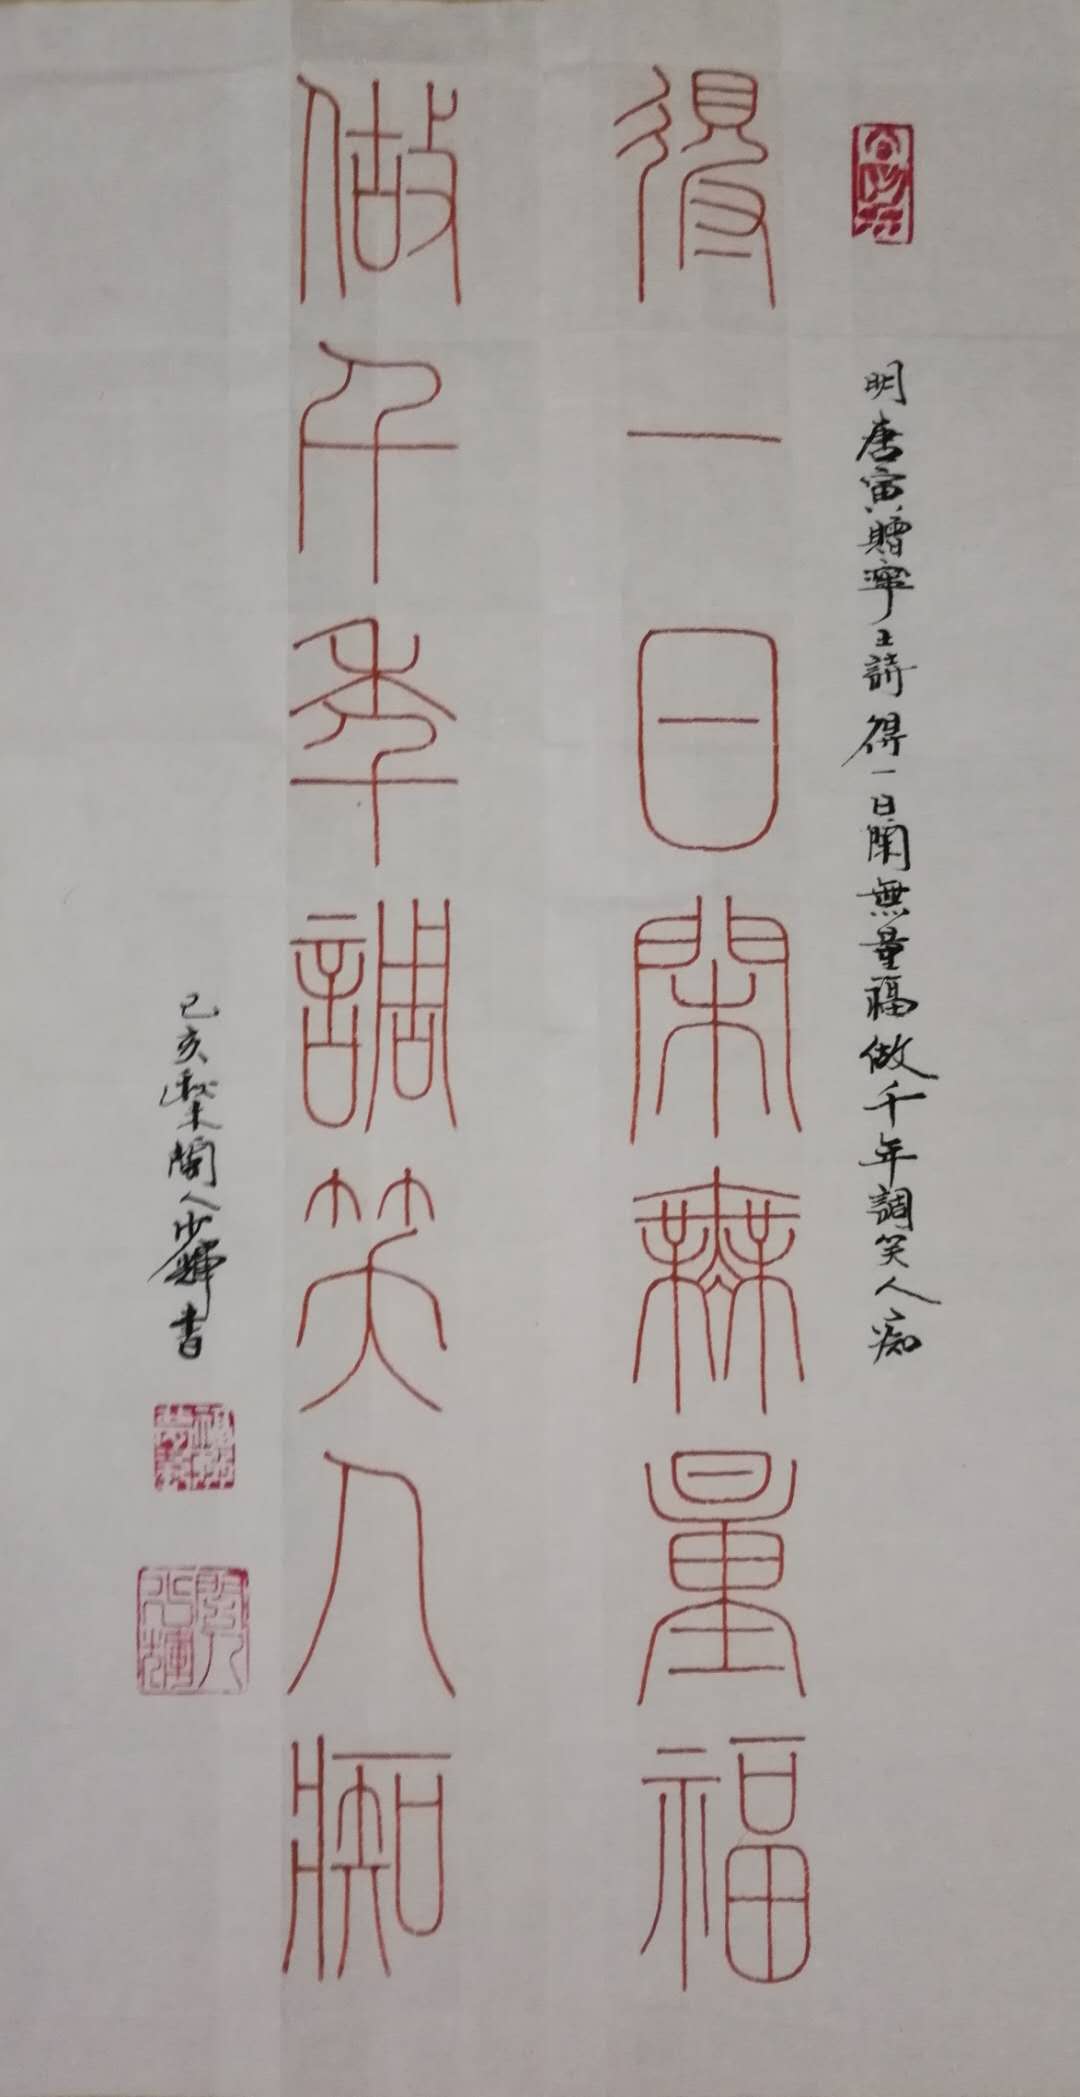 明唐寅贈寧王詩得一日閒無量福做千年調笑人癡
得一日閑無量福
做千年調笑人痴
己亥梨閣人少輝書